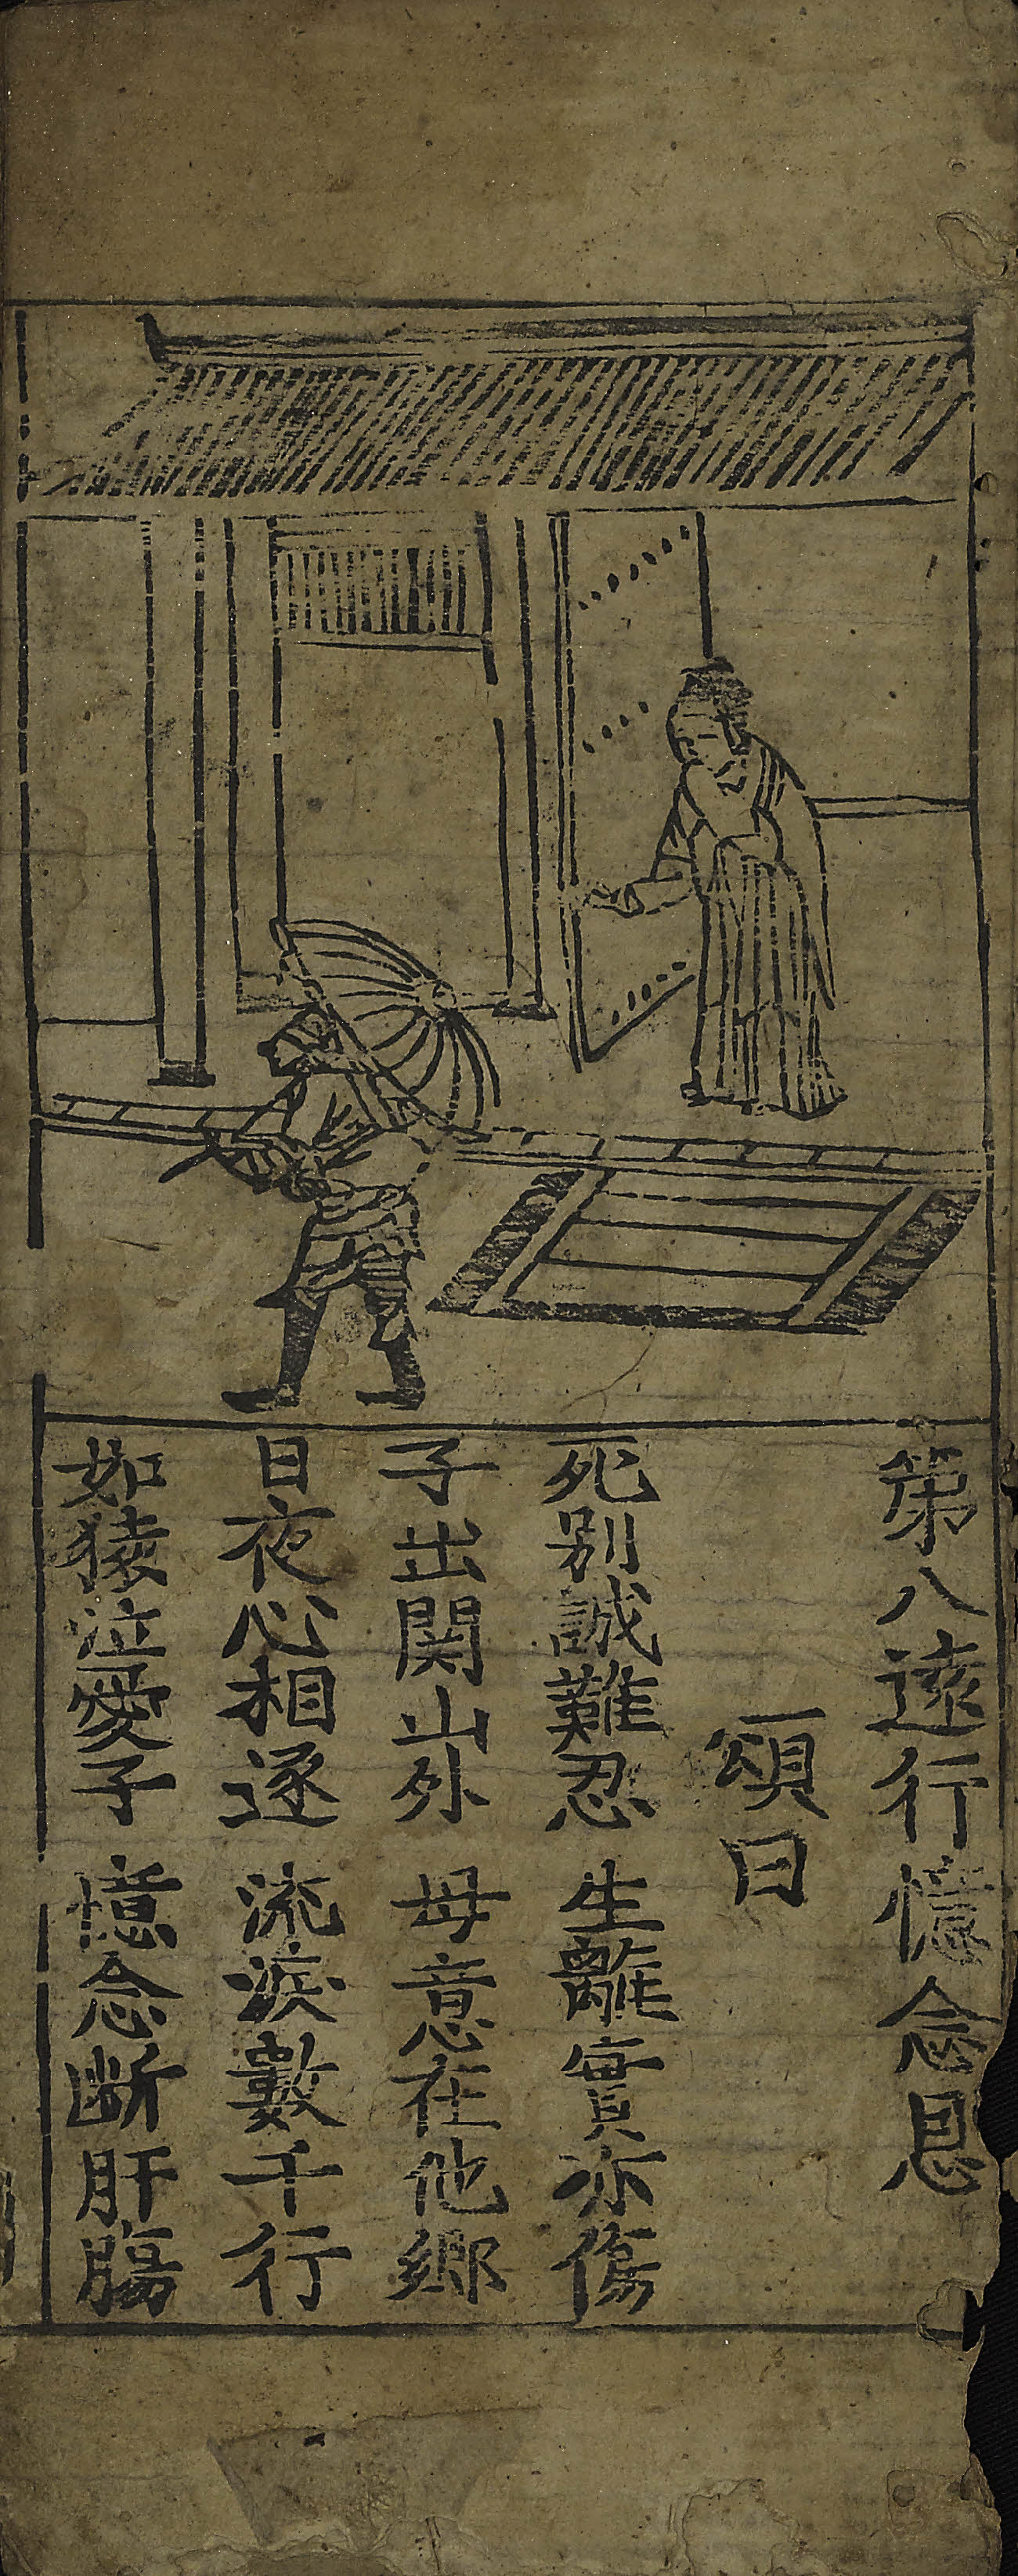 第八遠行憶念恩
頌曰
死别誠難忍 生離實亦傷
子出関山外 母意在他鄉
日夜心相逐 流淚數千行
如猿泣愛子 憶念断肝腸